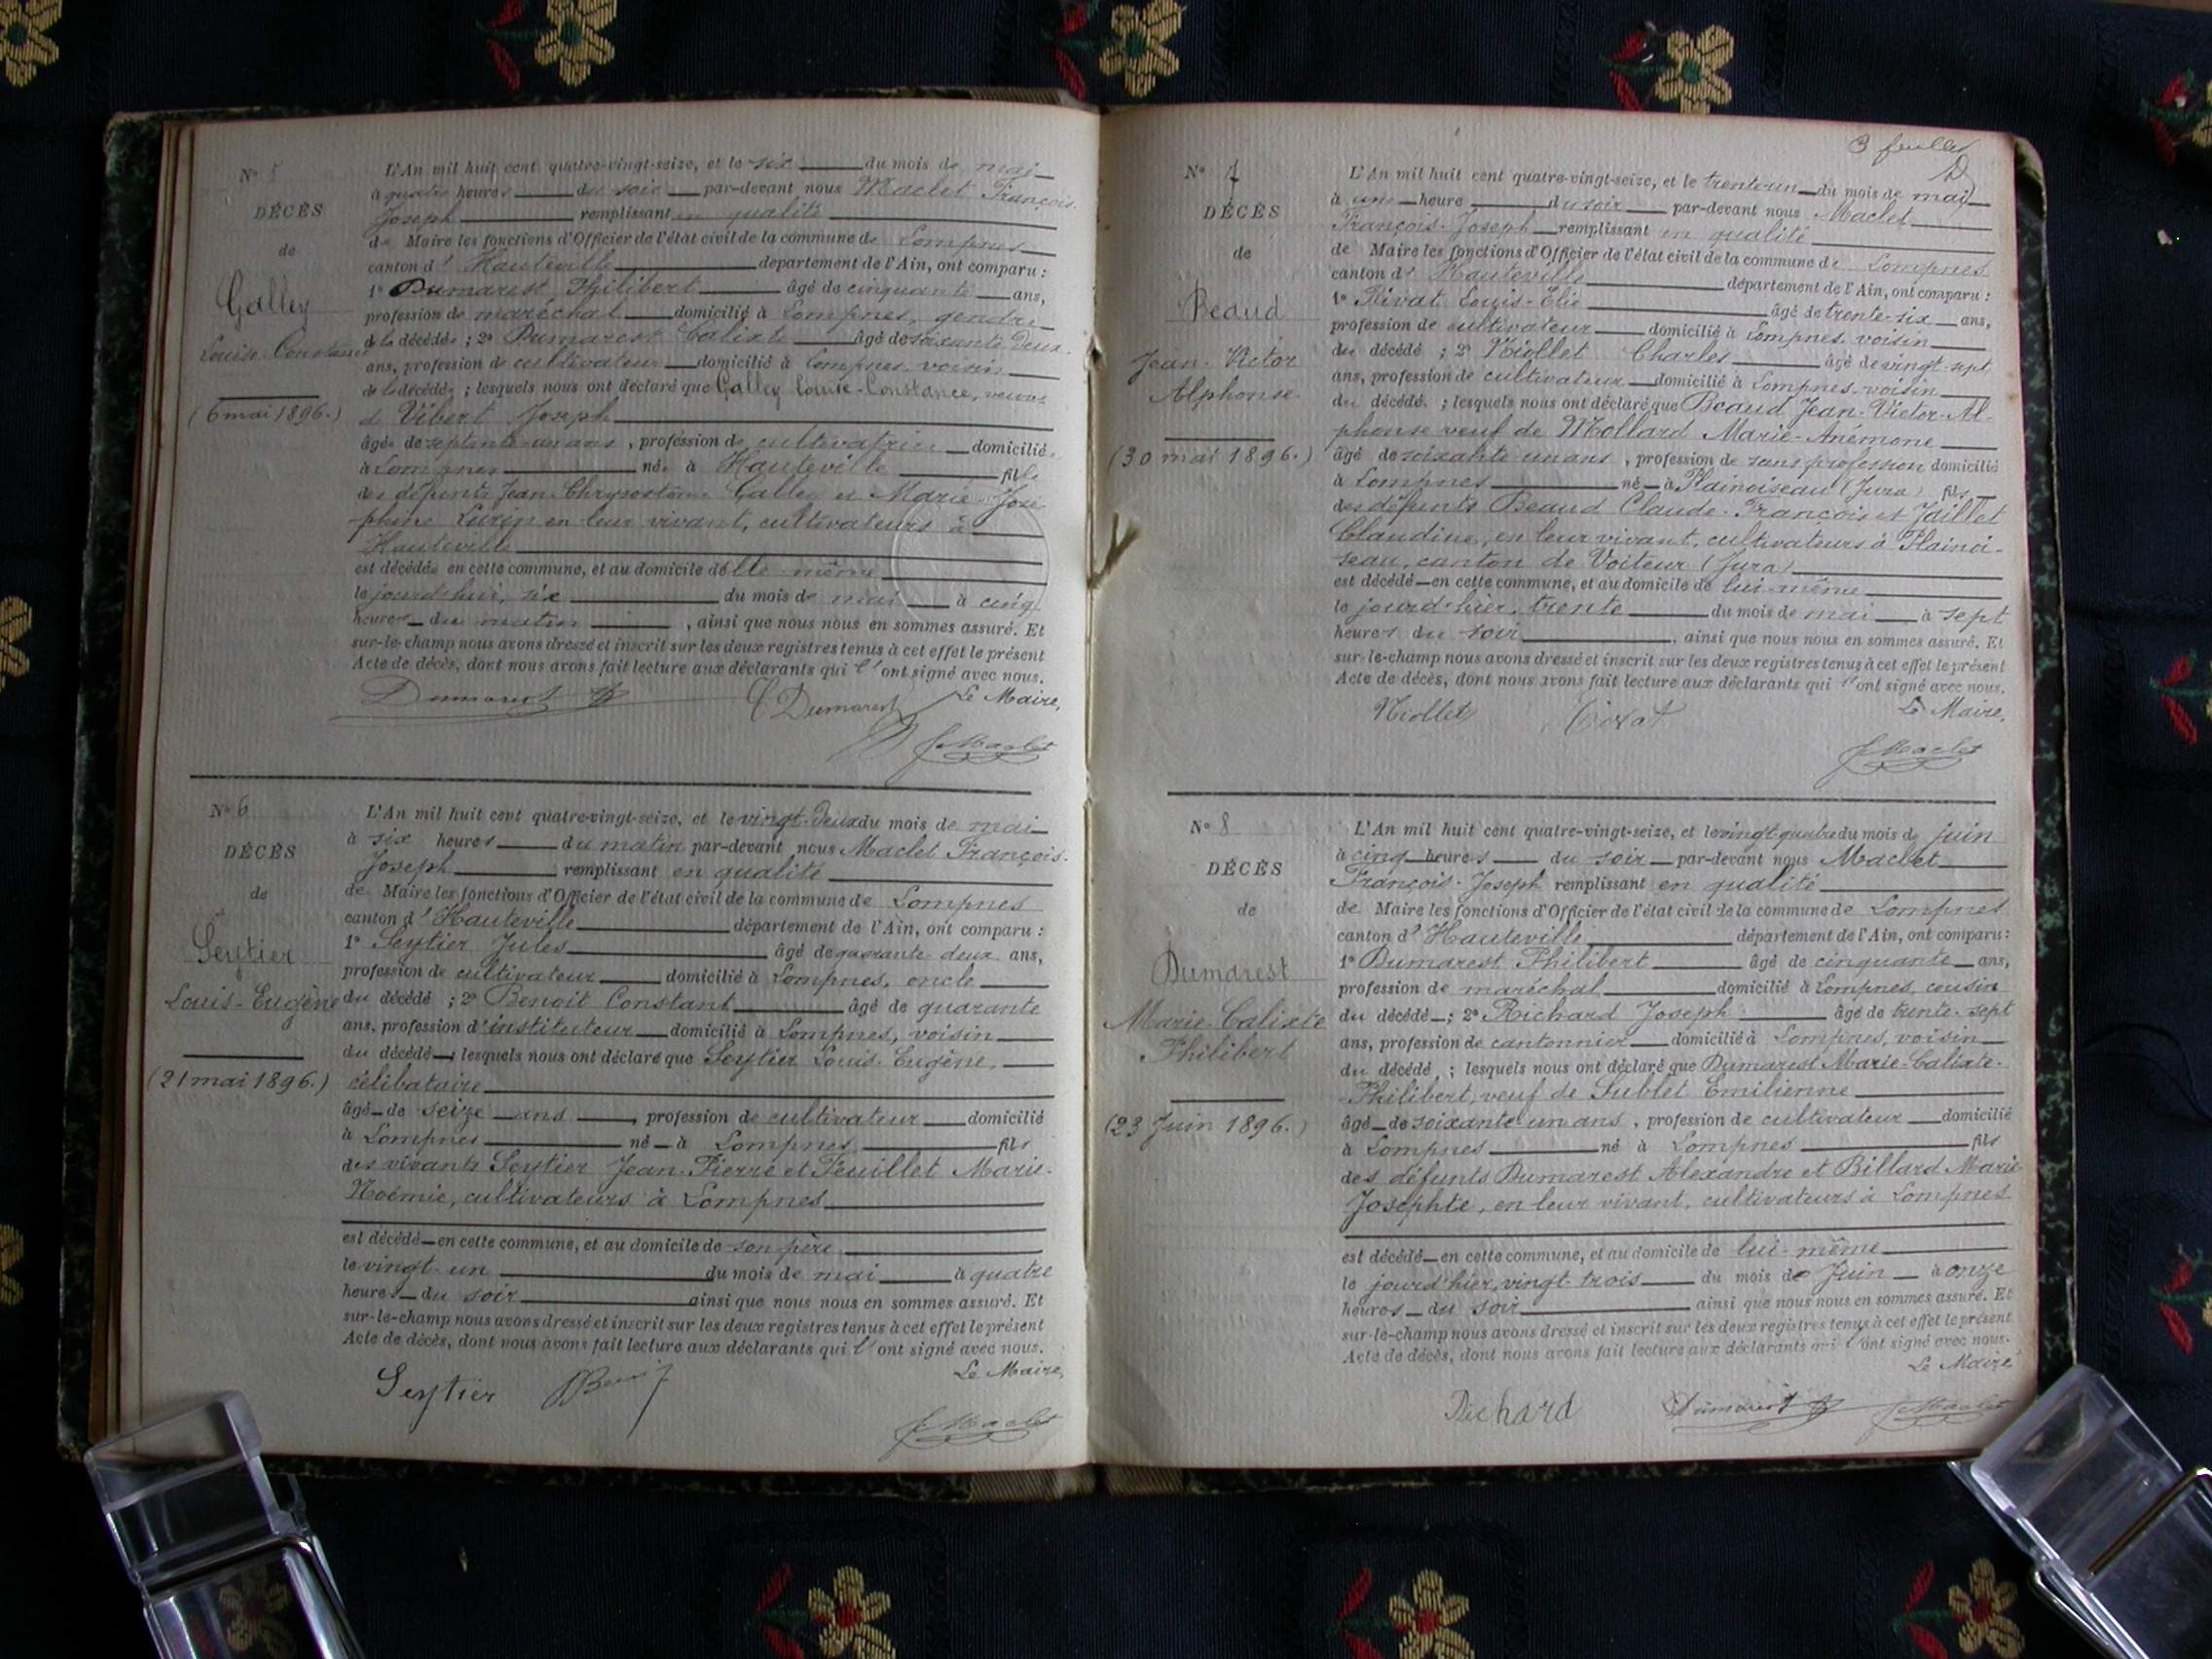 N° 5
DÉCÈS
de
Galley
Louise Constance
(6 mai 1896.)
L'An mil huit cent quatre-vingt-seize, et le six du mois de mai
à quatre heures du soir par-devant nous Maclet François-
Joseph remplissant en qualité
de Maire les fonctions d'Officier de l'état civil de la commune de Lompnes
canton d' Hauteville département de l'Ain, ont comparu :
1° Dumarest Philibert âgé de cinquante ans,
profession de maréchal domicilié à Lompnes, gendre
de la décédée ; 2° Dumarest Calixte âgé de soixante deux
ans, profession de cultivateur domicilié à Lompnes voisin
de la décédée ; lesquels nous ont déclaré que Galley Louise-Constance, veuve
de Vibert Joseph
âgée de septante-un ans, profession de cultivatrice domiciliée
à Lompnes née à Hauteville fille
des défunts Jean Chrysostôme Galley et Marie José-
phine Lurin en leur vivant, cultivateurs à
Hauteville
est décédée en cette commune, et au domicile d'elle-même
le jourd'hui, six du mois de mai à cinq
heures du matin, ainsi que nous nous en sommes assuré. Et
sur-le-champ nous avons dressé et inscrit sur les deux registres tenus à cet effet le présent
Acte de décès, dont nous avons fait lecture aux déclarants qui l'ont signé avec nous.
Dumarest C Dumarest Le Maire,
f. Maclet
N° 6
DÉCÈS
de
Seytier
Louis-Eugène
(21 mai 1896.)
L'An mil huit cent quatre-vingt-seize, et le vingt-deux du mois de mai
à six heures du matin par-devant nous Maclet François-
Joseph remplissant en qualité
de Maire les fonctions d'Officier de l'état civil de la commune de Lompnes
canton d' Hauteville département de l'Ain, ont comparu :
1° Seytier Jules âgé de quarante deux ans,
profession de cultivateur domicilié à Lompnes, oncle
du décédé ; 2° Benoit Constant âgé de quarante
ans, profession d'instituteur domicilié à Lompnes, voisin
du décédé ; lesquels nous ont déclaré que Seytier Louis-Eugène,
célibataire
âgé de seize ans, profession de cultivateur domicilié
à Lompnes né à Lompnes fils
des vivants Seytier Jean-Pierre et Feuillet Marie-
Noémie, cultivateurs à Lompnes
est décédé en cette commune, et au domicile de son père
le vingt-un du mois de mai à quatre
heures du soir ainsi que nous nous en sommes assuré. Et
sur-le-champ nous avons dressé et inscrit sur les deux registres tenus à cet effet le présent
Acte de décès, dont nous avons fait lecture aux déclarants qui l'ont signé avec nous.
Le Maire,
Seytier
f. Maclet
3 feuillet
N° 7
DÉCÈS
de
Beaud
Jean-Victor
Alphonse
(30 mai 1896.)
L'An mil huit cent quatre-vingt-seize, et le trente un du mois de mai
à une heure du soir par-devant nous Maclet
François-Joseph remplissant en qualité
de Maire les fonctions d'Officier de l'état civil de la commune de Lompnes
canton d' Hauteville département de l'Ain, ont comparu :
1° Rivat Louis-Elie âgé de trente-six ans,
profession de cultivateur domicilié à Lompnes, voisin
du décédé ; 2° Niollet Charles âgé de vingt-sept
ans, profession de cultivateur domicilié à Lompnes-voisin
du décédé ; lesquels nous ont déclaré que Beaud Jean-Victor-Al-
phonse veuf de Mollard Marie-Anémone
âgé de soixante un ans, profession de sans profession domicilié
à Lompnes né à Plainoiseau (Jura) fils
des défunts Beaud Claude-François et Jaillet
Claudine, en leur vivant, cultivateurs à Plainoi-
seau, canton de Voiteur (Jura)
est décédé en cette commune, et au domicile de lui-même
le jourd'hier, trente du mois de mai à sept
heures du soir, ainsi que nous nous en sommes assuré. Et
sur-le-champ nous avons dressé et inscrit sur les deux registres tenus à cet effet le présent
Acte de décès, dont nous avons fait lecture aux déclarants qui l'ont signé avec nous.
Niollet Rivat Le Maire,
f. Maclet
N° 8
DÉCÈS
de
Dumarest
Marie-Calixte
Philibert
(23 Juin 1896.)
L'An mil huit cent quatre-vingt-seize, et le vingt quatre du mois de juin
à cinq heures du soir par-devant nous Maclet
François-Joseph remplissant en qualité
de Maire les fonctions d'Officier de l'état civil de la commune de Lompnes
canton d' Hauteville département de l'Ain, ont comparu :
1° Dumarest Philibert âgé de cinquante ans,
profession de maréchal domicilié à Lompnes cousin
du décédé ; 2° Richard Joseph âgé de trente-sept
ans, profession de cantonnier domicilié à Lompnes, voisin
du décédé ; lesquels nous ont déclaré que Dumarest Marie-Calixte-
Philibert, veuf de Sublet Emilienne
âgé de soixante un ans, profession de cultivateur domicilié
à Lompnes né à Lompnes fils
des défunts Dumarest Alexandre et Billard Marie
Josephte, en leur vivant, cultivateurs à Lompnes
est décédé en cette commune, et au domicile de lui-même
le jourd'hier, vingt-trois du mois de Juin à onze
heures du soir ainsi que nous nous en sommes assuré. Et
sur-le-champ nous avons dressé et inscrit sur les deux registres tenus à cet effet le présent
Acte de décès, dont nous avons fait lecture aux déclarants qui l'ont signé avec nous.
Le Maire
Richard Dumarest f. Maclet